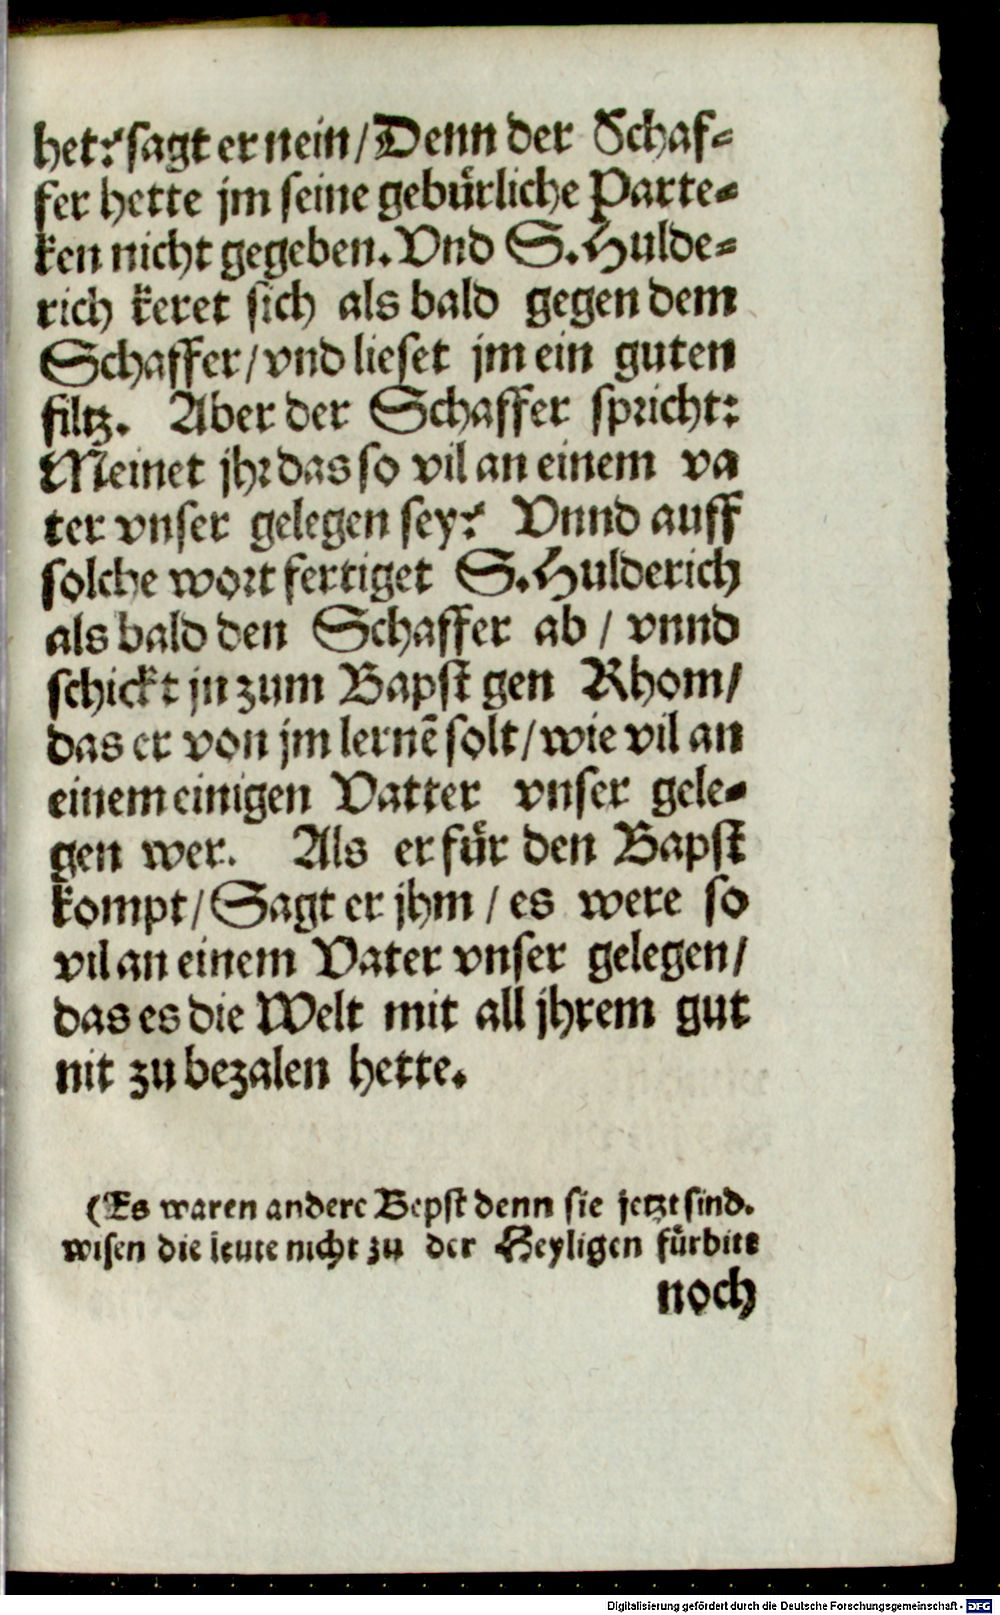 het? sagt er nein / Denn der Schaf-
fer hette jm seine gebürliche Parte-
ken nicht gegeben. Vnd S. Hulde-
rich keret sich als bald gegen dem
Schaffer / vnd lieset jm ein guten
filtz. Aber der Schaffer spricht:
Meinet jhr das so vil an einem va
ter vnser gelegen sey? Vnnd auff
solche wort fertiget S. Hulderich
als bald den Schaffer ab / vnnd
schickt jn zum Bapst gen Rhom /
das er von jm lernē solt / wie vil an
einem einigen Vatter vnser gele-
gen wer. Als er für den Bapst
kompt / Sagt er jhm / es were so
vil an einem Vater vnser gelegen /
das es die Welt mit all jhrem gut
nit zu bezalen hette.
(Es waren andere Bepst denn sie jetzt sind.
wisen die leute nicht zu der Heyligen fürbitt
noch
Digitalisierung gefördert durch die Deutsche Forschungsgemeinschaft - DFG